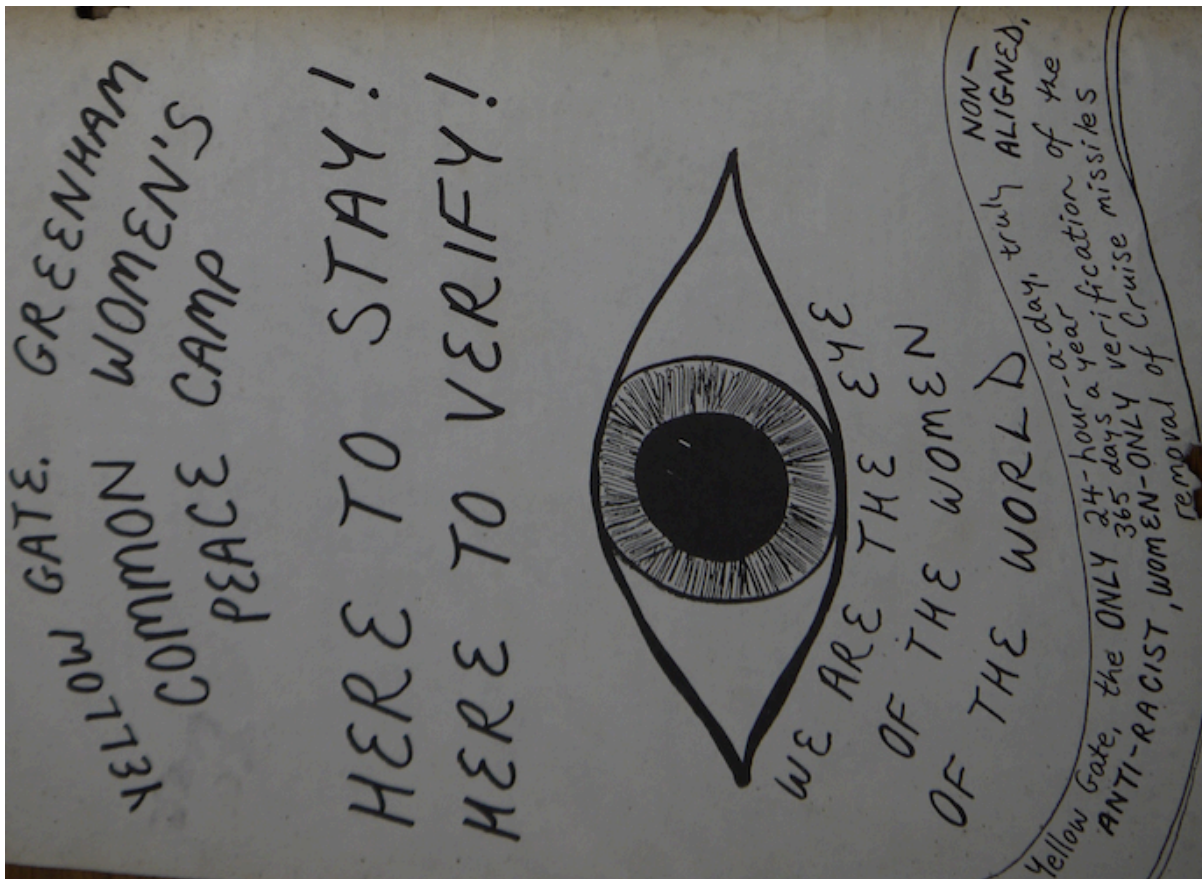 YELLOW GATE. GREENHAM
COMMON WOMEN'S
PEACE CAMP
HERE TO STAY!
HERE TO VERIFY!
WE ARE THE EYE
OF THE WOMEN
OF THE WORLD
Yellow Gate, the ONLY 24-hour-a-day, truly NON-
365 days a year ALIGNED,
ANTI-RACIST, WOMEN-ONLY verification of the
removal of Cruise missiles